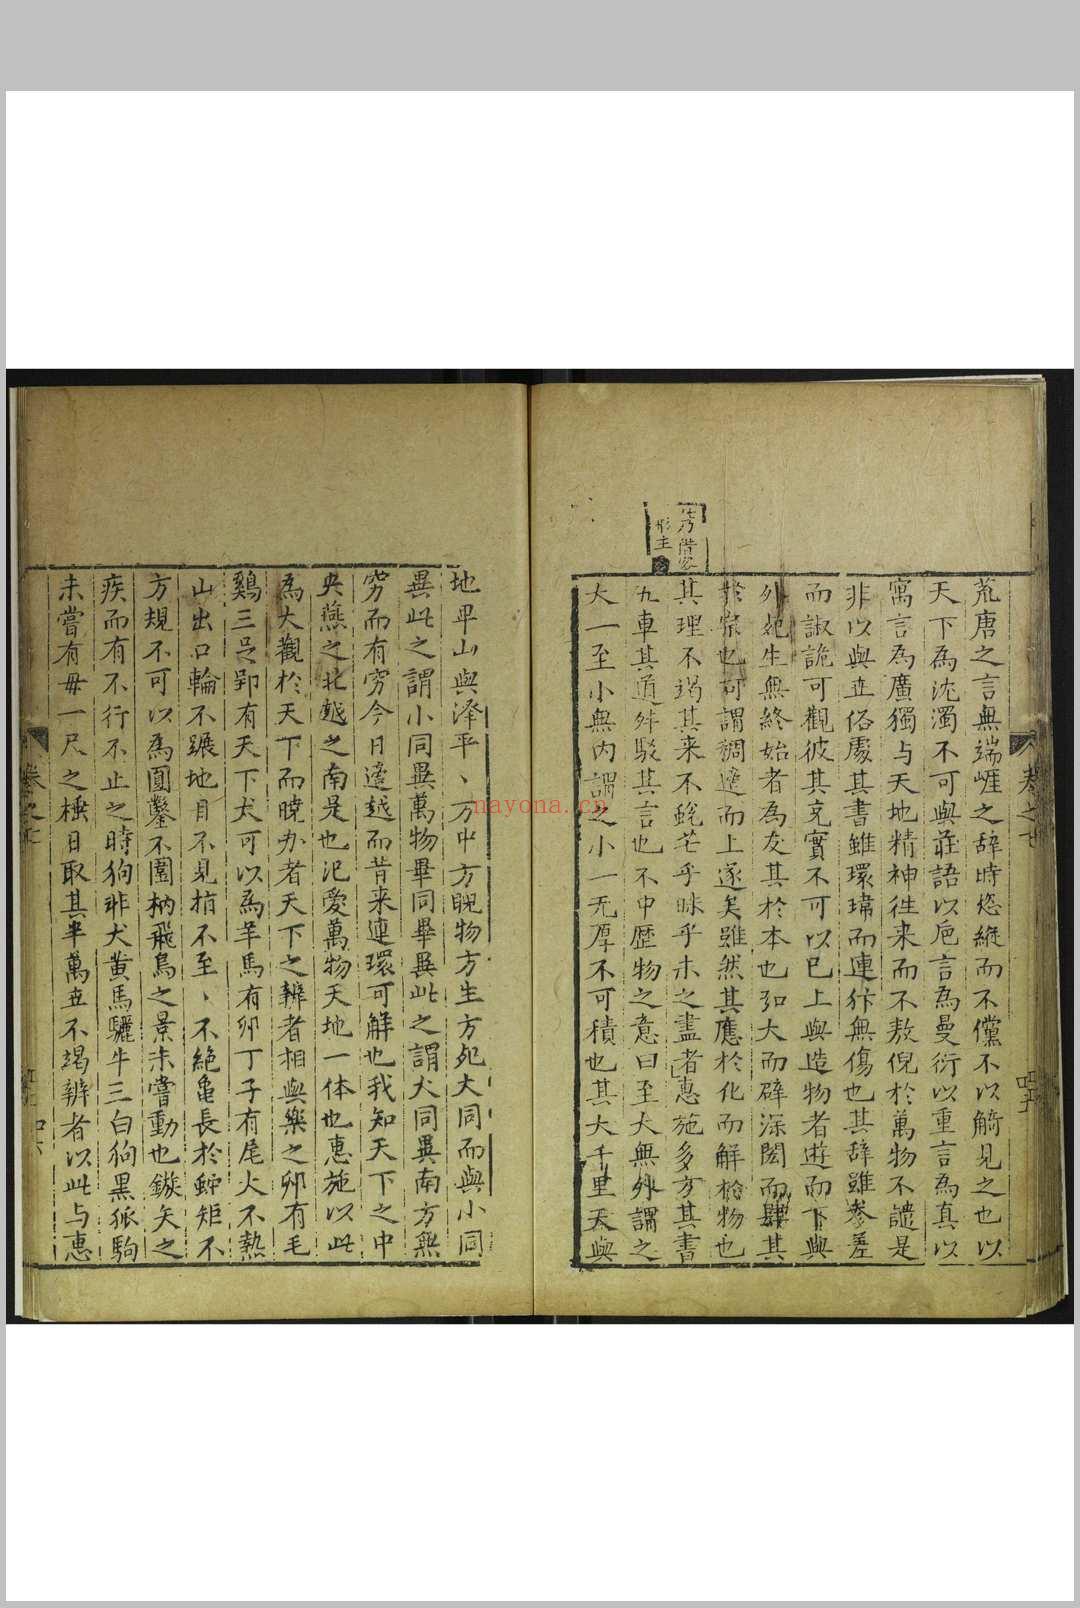 荒唐之言無端崕之辞時恣縱而不儻不以觭見之也以
天下為沈濁不可與莊語以巵言為曼衍以重言為真以
寓言為廣獨与天地精神徃来而不敖倪於萬物不譴是
非以與丗俗處其書雖環瑋而連犿無傷也其辞雖參差
而諔詭可觀彼其充實不可以已上與造物者遊而下與
外死生無終始者為友其於本也弘大而辟深閎而肆其
於宗也可謂稠達而上遂矣雖然其應於化而解於物也
其理不竭其来不蛻芒乎昧乎未之盡者惠施多方其書
五車其道舛駁其言也不中歴物之意曰至大無外謂之
大一至小無內謂之小一无厚不可積也其大千里天與
地卑山與泽平丶方中方睨物方生方死大同而與小同
異此之謂小同異萬物畢同畢異此之謂大同異南方無
穷而有穷今日適越而昔来連環可解也我知天下之中
央燕之北越之南是也汜愛萬物天地一体也惠施以此
為大觀於天下而曉办者天下之辨者相與樂之卵有毛
鷄三足郢有天下犬可以為羊馬有卵丁子有尾火不熱
山出口輪不蹍地目不見指不至丶不絕龟長於蛇矩不
方規不可以為圓鑿不圍枘飛鳥之景未嘗動也鏃矢之
疾而有不行不止之時狗非犬黄馬驪牛三白狗黑孤駒
未嘗有毋一尺之棰日取其半萬丗不竭辨者以此与惠
卷之七
nayona.cn